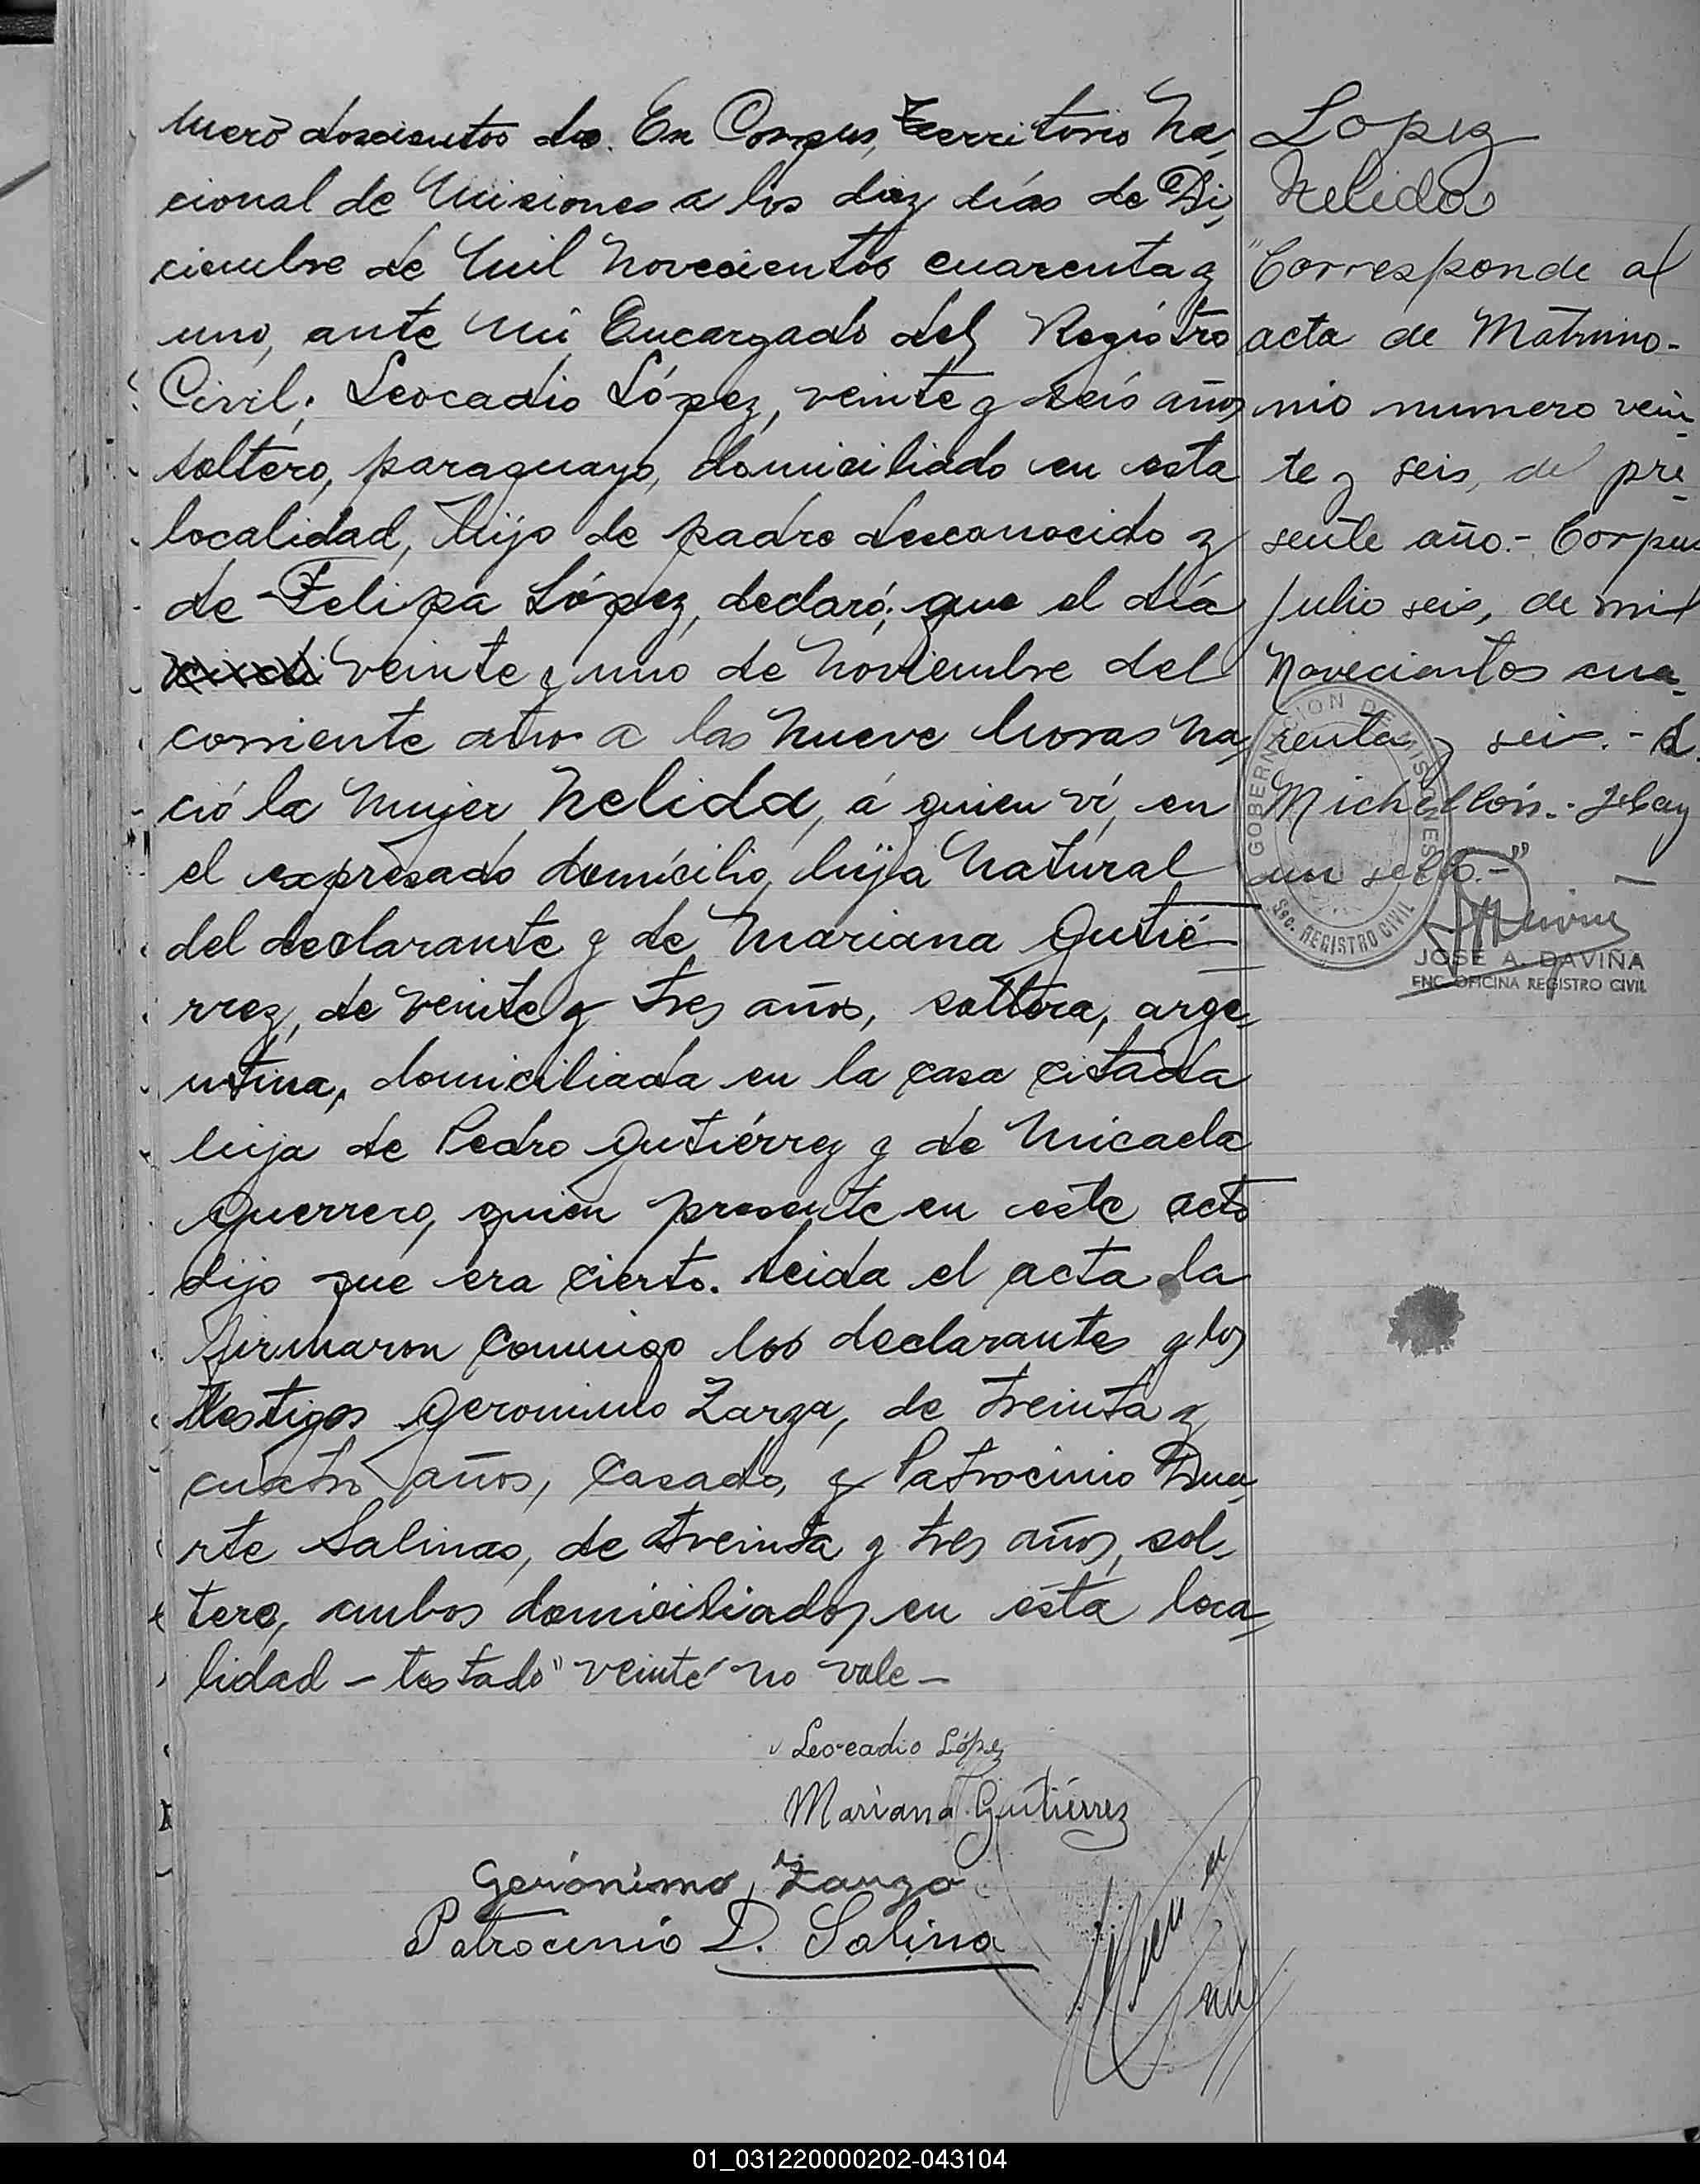 Numero doscientos dos. En Corpus, Territorio Na,
cional de Misiones a los diez días de Di,
ciembre de mil novecientos cuarenta y
uno, ante mí Encargado del Registro
Civil; Leocadio López, veinte y seis años
soltero, paraguayo, domiciliado en esta
localidad, hijo de padre desconocido y
de Felipa López, declaró; que el día
veinte y uno de noviembre del
corriente año a las nueve horas na,
ció la mujer Nelida, á quien ví, en
el expresado domicilio, hija natural
del declarante y de Mariana Gutié-
rrez, de veinte y tres años, soltera, arge,
ntina, domiciliada en la casa citada
hija de Pedro Gutiérrez y de Micaela
Guerrero, quien presente en este acto
dijo que era cierto. Leida el acta la
firmaron conmigo los declarantes y los
testigos Geronimo Zarza, de treinta y
cuatro años, casado, y Patrocinio Dua,
rte Salinas, de treinta y tres años, sol,
tero, ambos domiciliados en esta loca
lidad - testado "veinte" no vale -
Leocadio López
Mariana Gutiérrez
Gerónimo Zarza
Patrocinio D. Salina
Lopez
Nelida
"Corresponde al
acta de Matrimo-
nio numero vein
te y seis, del pre
sente año.- Corpus
Julio seis, de mil
novecientos cua
renta y seis.-
Michellón.- Hay
un sello.-"
GOBERNACION DE MISIONES
Sec. REGISTRO CIVIL
JOSE A. DAVIÑA
ENC. OFICINA REGISTRO CIVIL
01_031220000202-043104